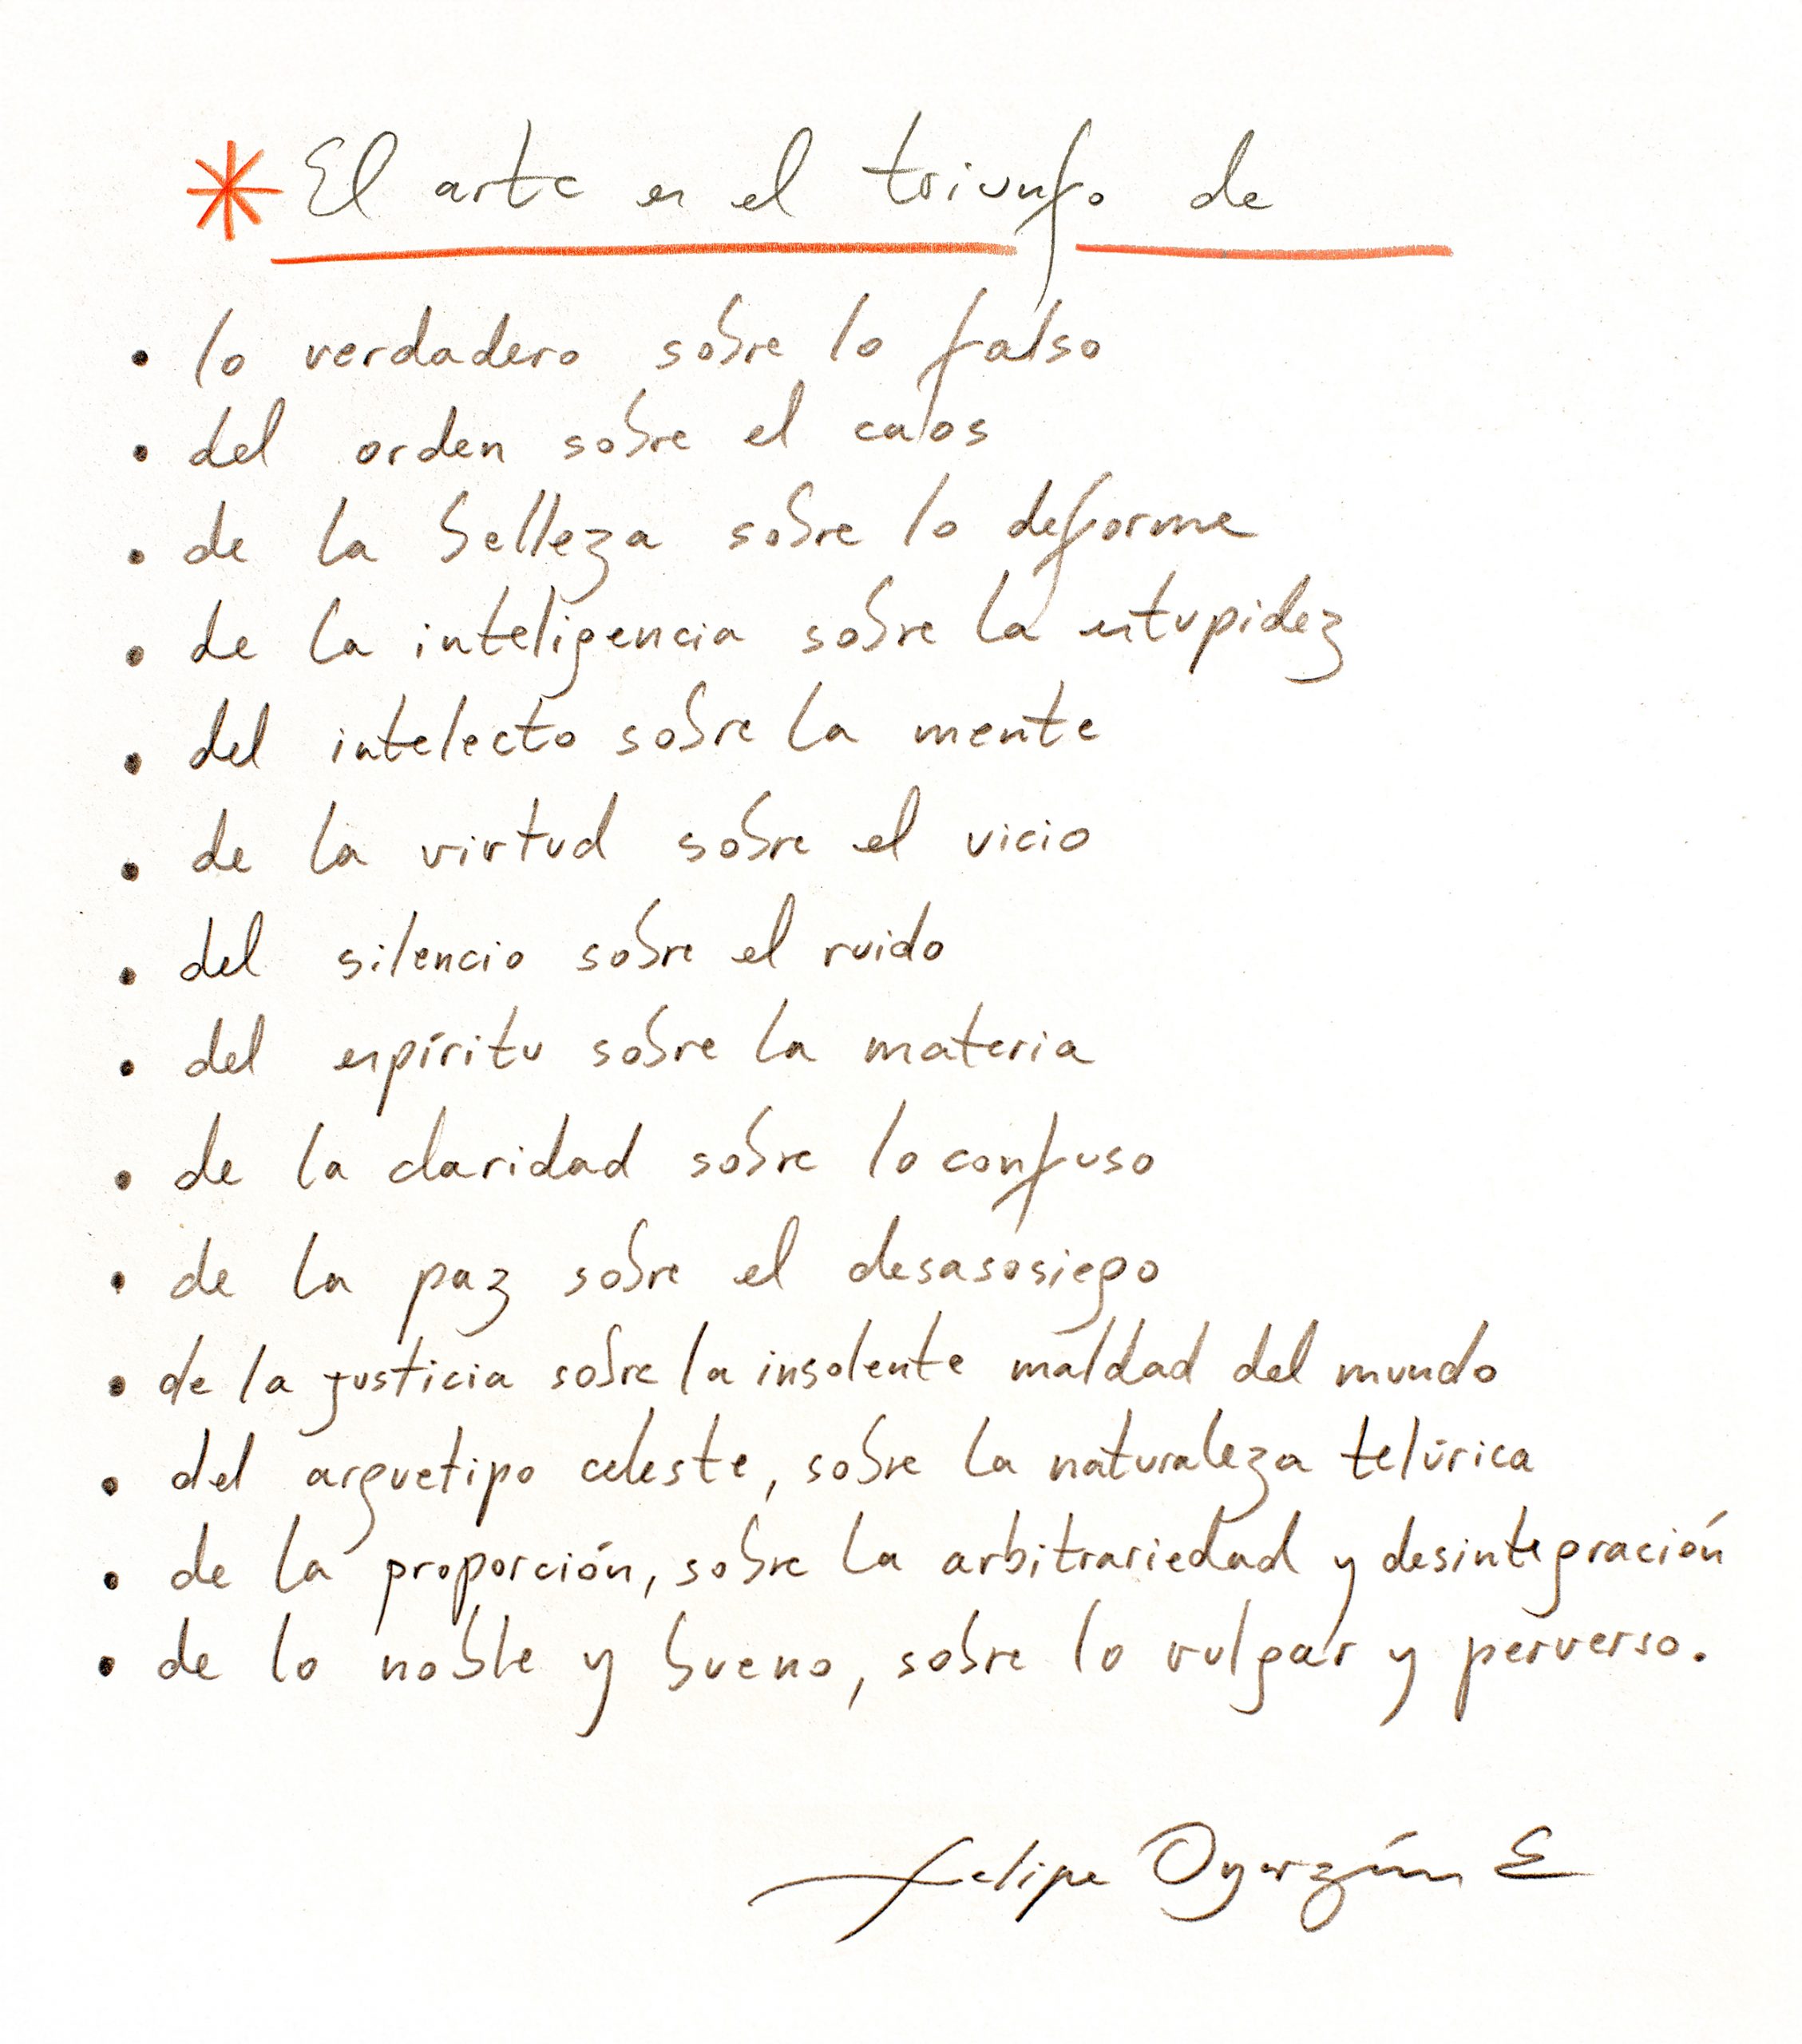 * El arte es el triunfo de
• lo verdadero sobre lo falso
• del orden sobre el caos
• de la belleza sobre lo deforme
• de la inteligencia sobre la estupidez
• del intelecto sobre la mente
• de la virtud sobre el vicio
• del silencio sobre el ruido
• del espíritu sobre la materia
• de la claridad sobre lo confuso
• de la paz sobre el desasosiego
• de la justicia sobre la insolente maldad del mundo
• del arquetipo celeste, sobre la naturaleza telúrica
• de la proporción, sobre la arbitrariedad y desintegración
• de lo noble y bueno, sobre lo vulgar y perverso.
Felipe Oyarzún E